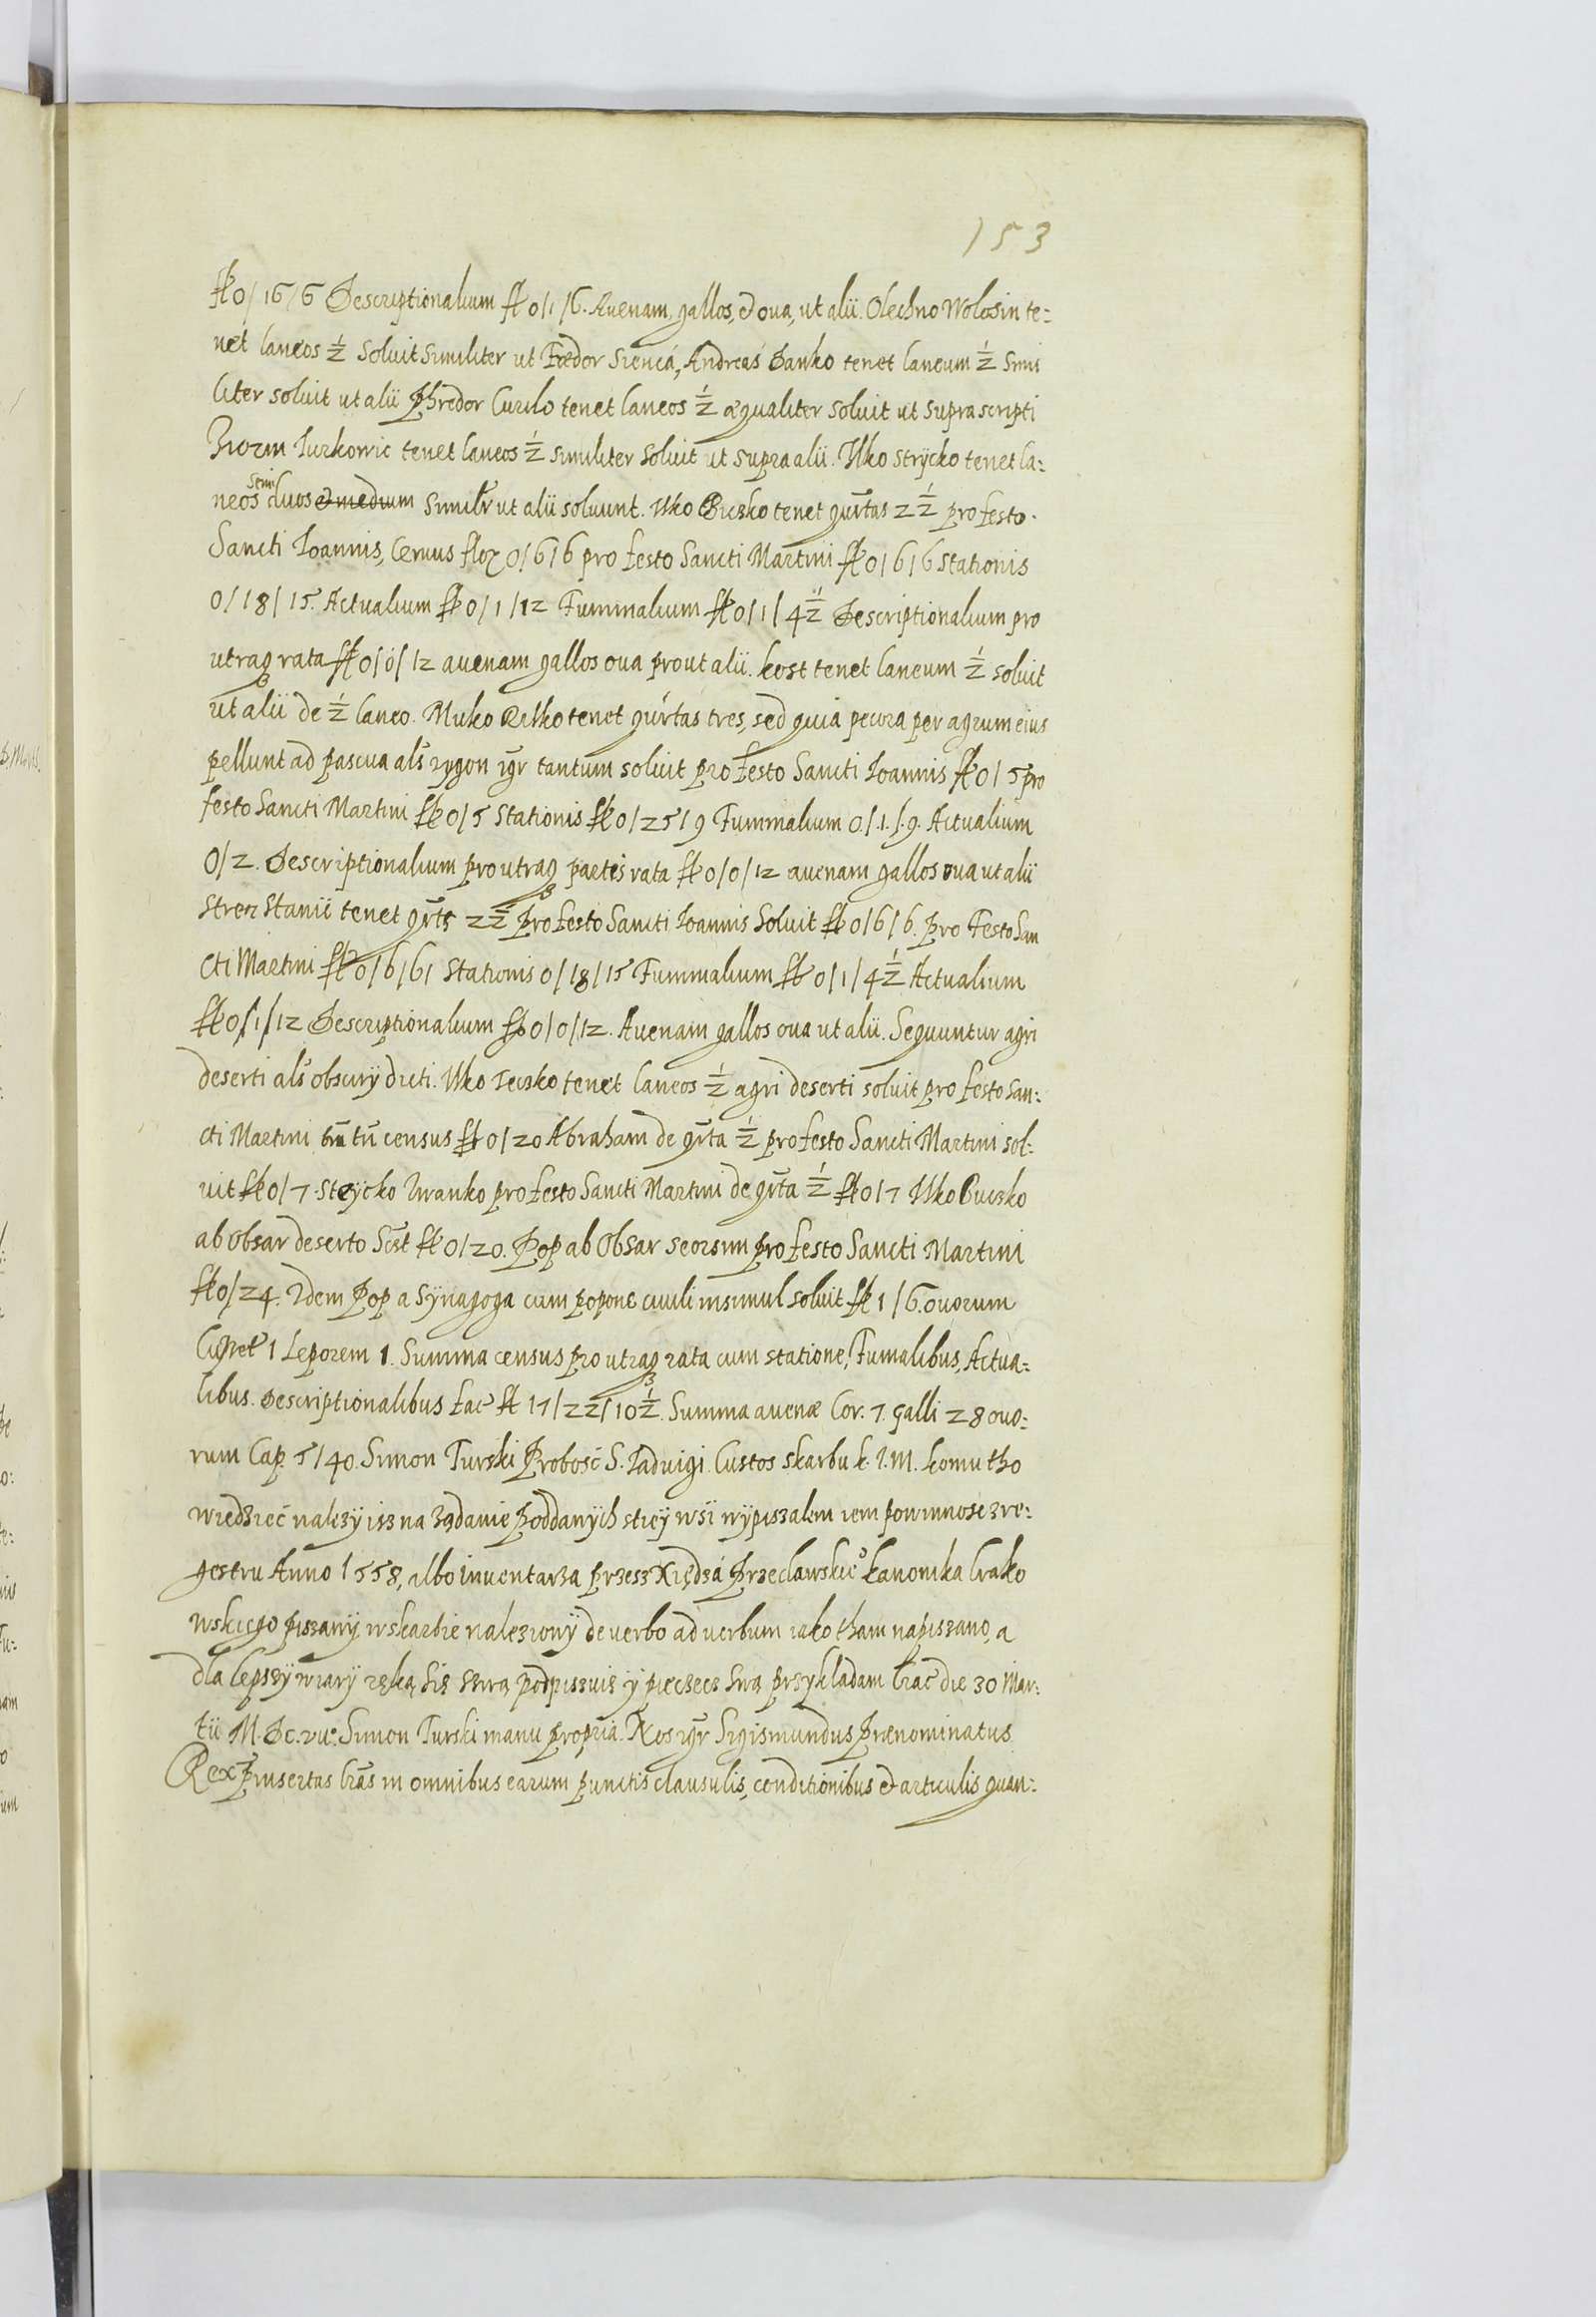 153
fl 0/16/6 Descriptionalium fl 0/1/6. Auenam, gallos, et oua, ut alii. Olechno Wolosin te:
net laneos ½ Soluit Similiter ut Foedor Siencá, Andreas Danko tenet laneum ½ Simi
liter soluit ut alii Phredor Curilo tenet laneos ½ æqualiter soluit ut suprascripti
Jurkowic tenet laneos ½ similiter soluit ut supra alii. Ilko Strycko tenet la:
neos Semi duos et medium Similr ut alii soluunt. Ilko Buczko tenet qurtas 2 ½ pro festo
Sancti Ioannis, Census flor 0/6/6 pro festo Sancti Martini fl 0/6/6 Stationis
0/18/15. Actualium fl 0/1/12 Fummalium fl 0/1/4½ Descriptionalium pro
utraq rata fl 0/0/12 auenam gallos oua prout alii. kost tenet laneum ½ soluit
ut alii de ½ laneo. Muko Relko tenet qurtas tres, sed quia pecora per agrum eius
pellunt ad pascua als rzgon igr tantum soluit pro festo Sancti Ioannis fl 0/5 pro
festo Sancti Martini fl 0/5 Stationis fl 0/25/9 Fummalium 0/.1./.9. Actualium
0/2. Descriptionalium pro utraq partis rata fl 0/0/12 auenam gallos oua ut alii
Strez Stanii tenet qrts 2½ pro festo Sancti Ioannis Soluit fl 0/6/6. pro Festo San
cti Martini fl 0/6/6/ Stationis 0/18/15 Fummalium fl 0/1/4½ Actualium
fl 0/1/12 Descriptionalium fl 0/0/12. Auenam gallos oua ut alii. Sequuntur agri
deserti als obszary dicti. Ilko Ieczko tenet laneos ½ agri deserti soluit pro festo San:
cti Martini tm census fl 0/20 Abraham de qrta ½ pro festo Sancti Martini sol:
uit fl 0/7. Strycko Iwanko pro festo Sancti Martini de qrta ½ fl 0/7 Ilko Buczko
ab obsar deserto Sct fl 0/20. Pop ab Obsar seorsim pro festo Sancti Martini
fl 0/24. Idem Pop a Synagoga cum popone cuuli insimul soluit fl 1/6. ouorum
1 Leporem 1. Summa census pro utraq rata cum statione, Fumalibus, Actua:
libus. Descriptionalibus fac fl 17/22/10½. Summa auenæ Cor. 7. galli 28 ouo:
rum Cap. 5/40. Simon Turski Probosć S. Jadwigi. Custos skarbu k. I. M. komu tho
wiedzieć nalezy isz na ządanie poddanych stiey wsi wypiszalem iem powinnosc z re:
gestru Anno 1558, albo inuentarza przesz Xiędzá Przeclawskieo kanonika krako
wskiego piszany w skarbie nalezionÿ de uerbo ad uerbum iako tham napiszano, a
dla lepszÿ wiarÿ ręką się szwą podpiszuię y pieczecz swą przykladam Crac die 30 Mar:
tii M. Dc. vii. Simon Turski manu propria. Nos igr Sigismundus Prænominatus
Rex pinsertas lras in omnibus earum punctis clausulis, conditionibus et articulis quan: